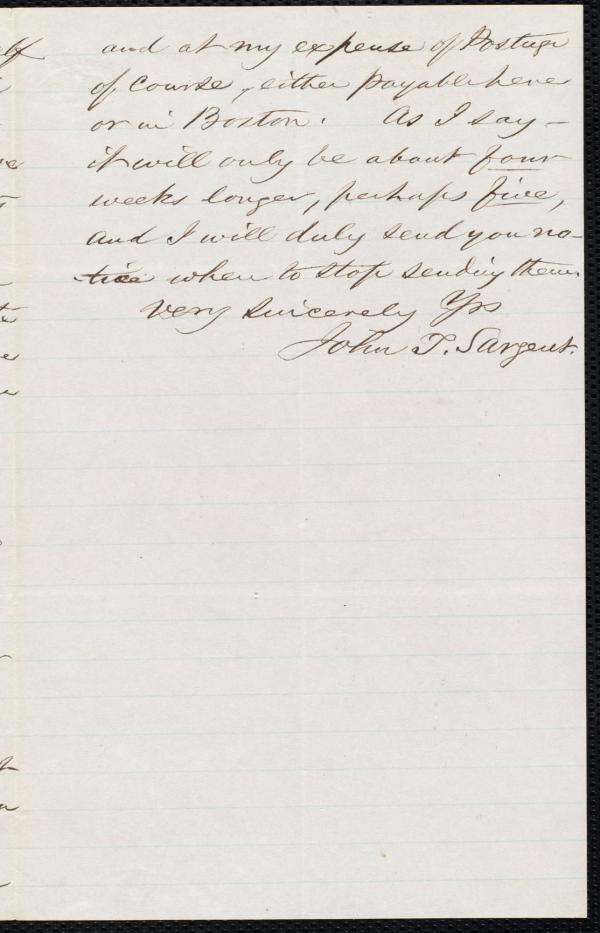 and at my expense of Postage
of course, either payable here
or in Boston. As I say –
it will only be about four
weeks longer, perhaps five,
and I will duly send you no-
tice when to stop sending them
Very Sincerely Yrs
John T. Sargent.